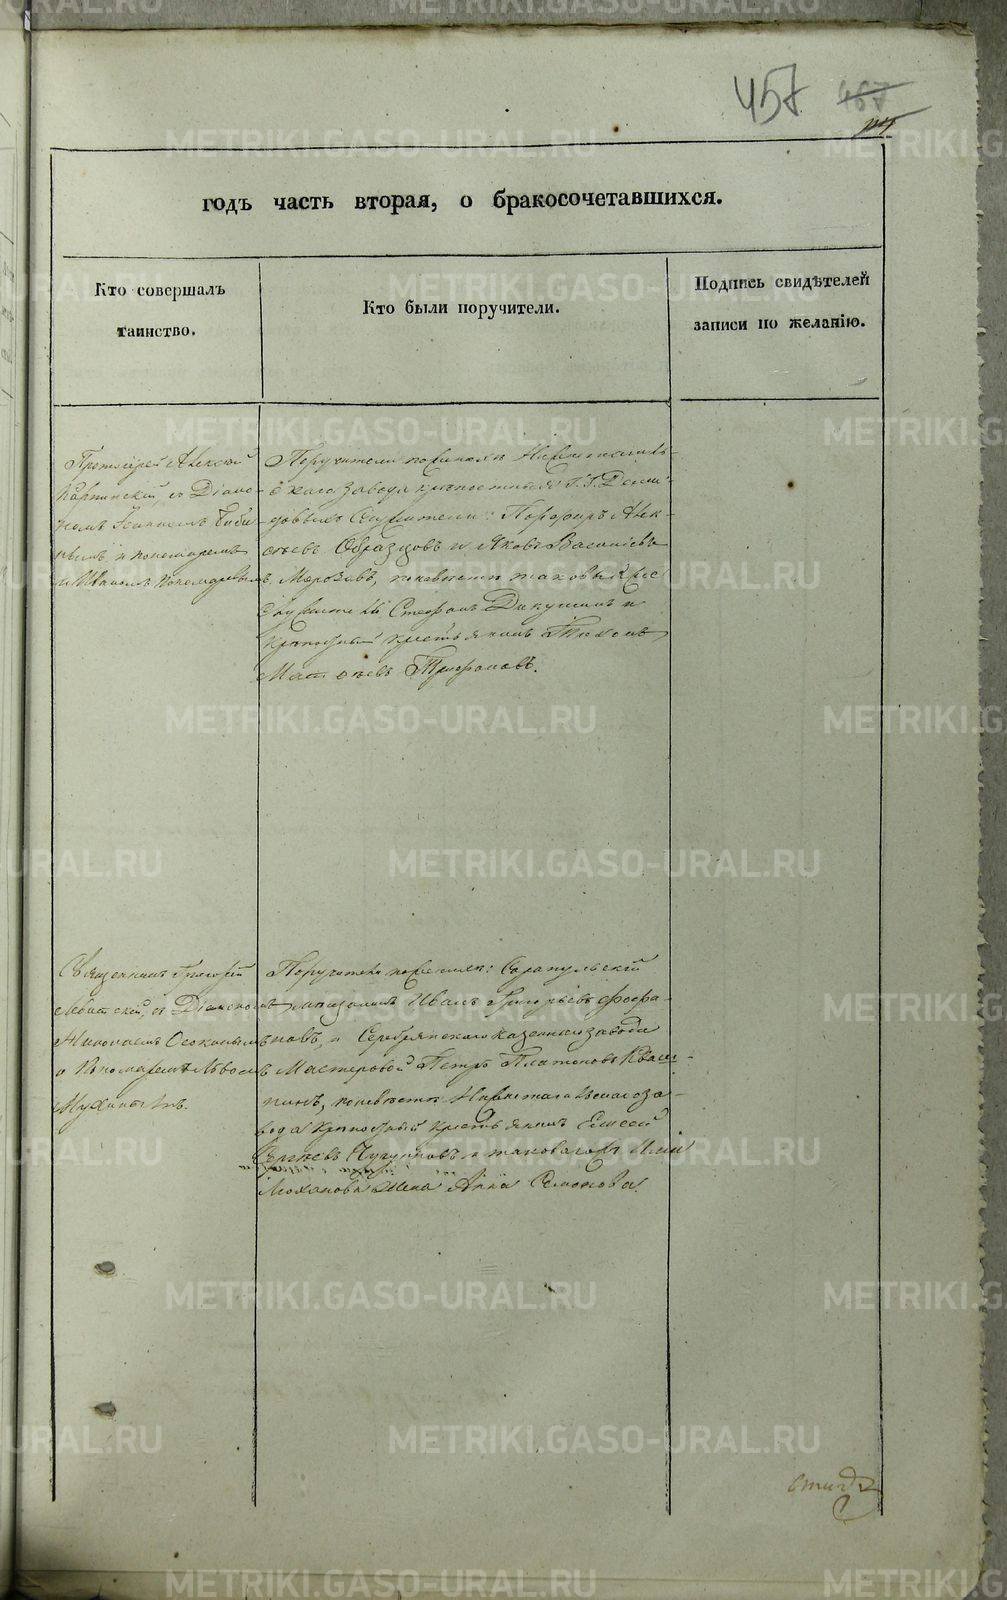 457 467
годъ часть вторая, о бракосочетавшихся.
Кто совершалъ
таинство.
Кто были поручители.
Подпись свидѣтелей
записи по желанію.
Протоіерей Алексѣй
Карпинскій, съ Діако-
номъ Іоанномъ
и пономаремъ
Иваномъ Пономаревымъ
Поручители по женихѣ Нижнетагиль-
скаго завода крѣпостные Г.Г. Деми-
довыхъ Служители: Порфиръ Алек-
сѣевъ Образцовъ и Яковъ Васильевъ
Морозовъ, по невѣстѣ таковые
Служитель Стефанъ Дикушинъ и
крѣпостный крестьянинъ Тихонъ
Матвѣевъ Трифоновъ.
Священникъ Григорій
съ Діакономъ
Николаемъ
и Пономаремъ Львомъ
Мухинымъ.
Поручители по женихѣ: Сарапульскій
мѣщанинъ Иванъ Григорьевъ Феофа-
новъ, и Серебрянскаго казеннаго завода
Мастеровой Петръ Платоновъ Кваш-
нинъ, по невѣстѣ Нижнетагильскаго за-
вода крѣпостный крестьянинъ Елисей
Сергѣевъ Чугуновъ и таковагожъ Иліи
Молханова жена Анна Семенова.
METRIKI.GASO-URAL.RU